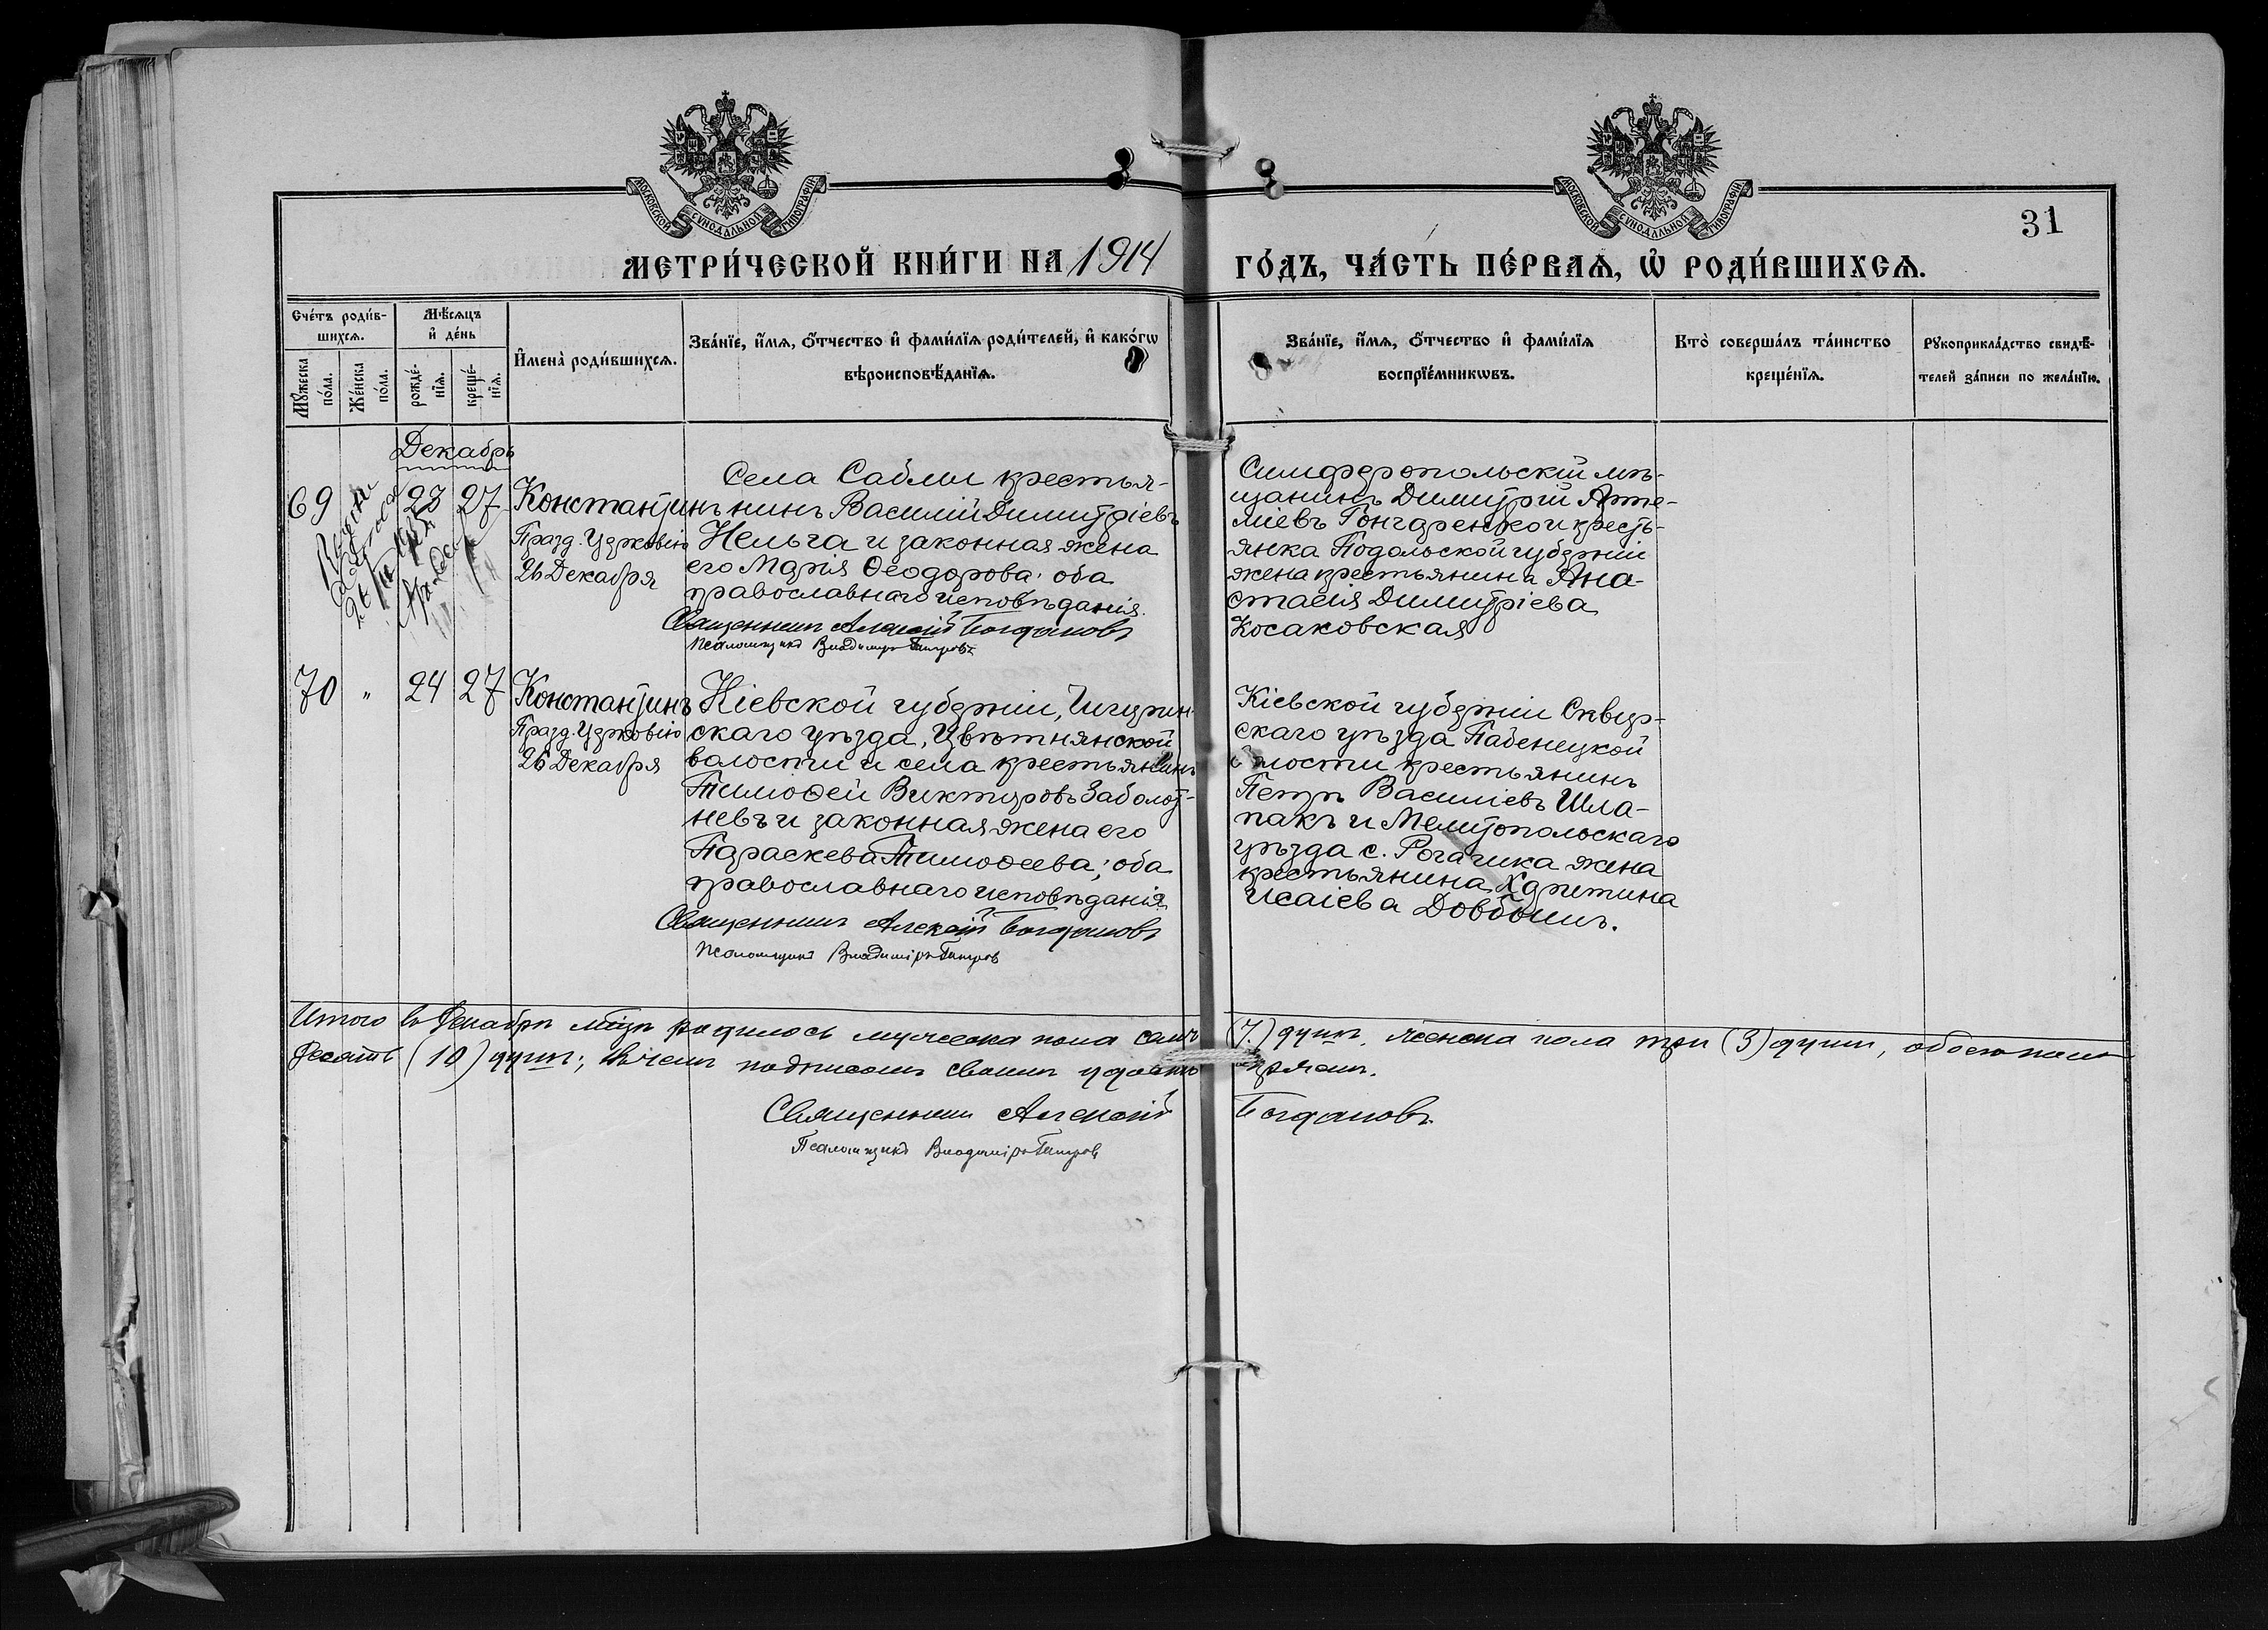 МОСКОВСКОЙ СѴНОДАЛЬНОЙ ТИПОГРАФІИ
МОСКОВСКОЙ СѴНОДАЛЬНОЙ ТИПОГРАФІИ
31
МЕТРИ́ЧЕСКОЙ КНИ́ГИ НА 1914 ГО́ДЪ, ЧА́СТЬ ПЕ́РВАѦ, Ѡ РОДИ́ВШИХСѦ.
Сче́тъ роди́в-
шихсѧ.
Мꙋ́жеска
по́ла.
Же́нска
по́ла.
Мѣ́сѧцъ
и҆ де́нь
рожде́-
нїѧ.
креще́-
нїѧ.
И҆мена̀ роди́вшихсѧ.
Зва́нїе, и҆́мѧ, ѻ҆́тчество и҆ фами́лїѧ роди́телей, и҆ како́гѡ
вѣроисповѣ́данїѧ.
Зва́нїе, и҆́мѧ, ѻ҆́тчество и҆ фами́лїѧ
воспрїе́мникѡвъ.
Кто̀ соверша́лъ та́инство
креще́нїѧ.
Рꙋкоприкла́дство свидѣ́-
телей за́писи по жела́нїю.
Декабрь
69
23 27
Константинъ
Празд. Церковію
26 Декабря
Села Саблы крестья-
нинъ Василій Димитріевъ
Нельга и законная жена
его Марія Ѳеодорова; оба
православнаго исповѣданія.
Священникъ Алексій Богдановъ
Псаломщикъ Владиміръ
Симферопольскій мѣ-
щанинъ Димитрій Арте-
міевъ Гончаренко и кресть-
янка Подольской губерніи
жена крестьянина Ана-
стасія Димитріева
Косаковская
70 " 24 27
Константинъ
Празд. Церковію
26 Декабря
Кіевской губерніи, Чигирин-
скаго уѣзда, Цвѣтнянской
волости и села крестьянинъ
Тимоѳей Викторовъ Заболот-
невъ и законная жена его
Параскева Тимоѳеева; оба
православнаго исповѣданія
Священникъ Алексій Богдановъ
Псаломщикъ Владиміръ
Кіевской губерніи Сквир-
скаго уѣзда
волости крестьянинъ
Петръ Василіевъ Шла-
пакъ и Мелитопольскаго
уѣзда с. Рогачика жена
крестьянина Харитина
Исаіева Довбышъ.
Итого въ Декабрѣ м-цѣ родилось мужеска пола семь (7) душъ, женска пола три (3) души, обоего пола
десять (10) душъ; въ чемъ подписомъ своимъ удостовѣряемъ.
Священникъ Алексій Богдановъ
Псаломщикъ Владиміръ